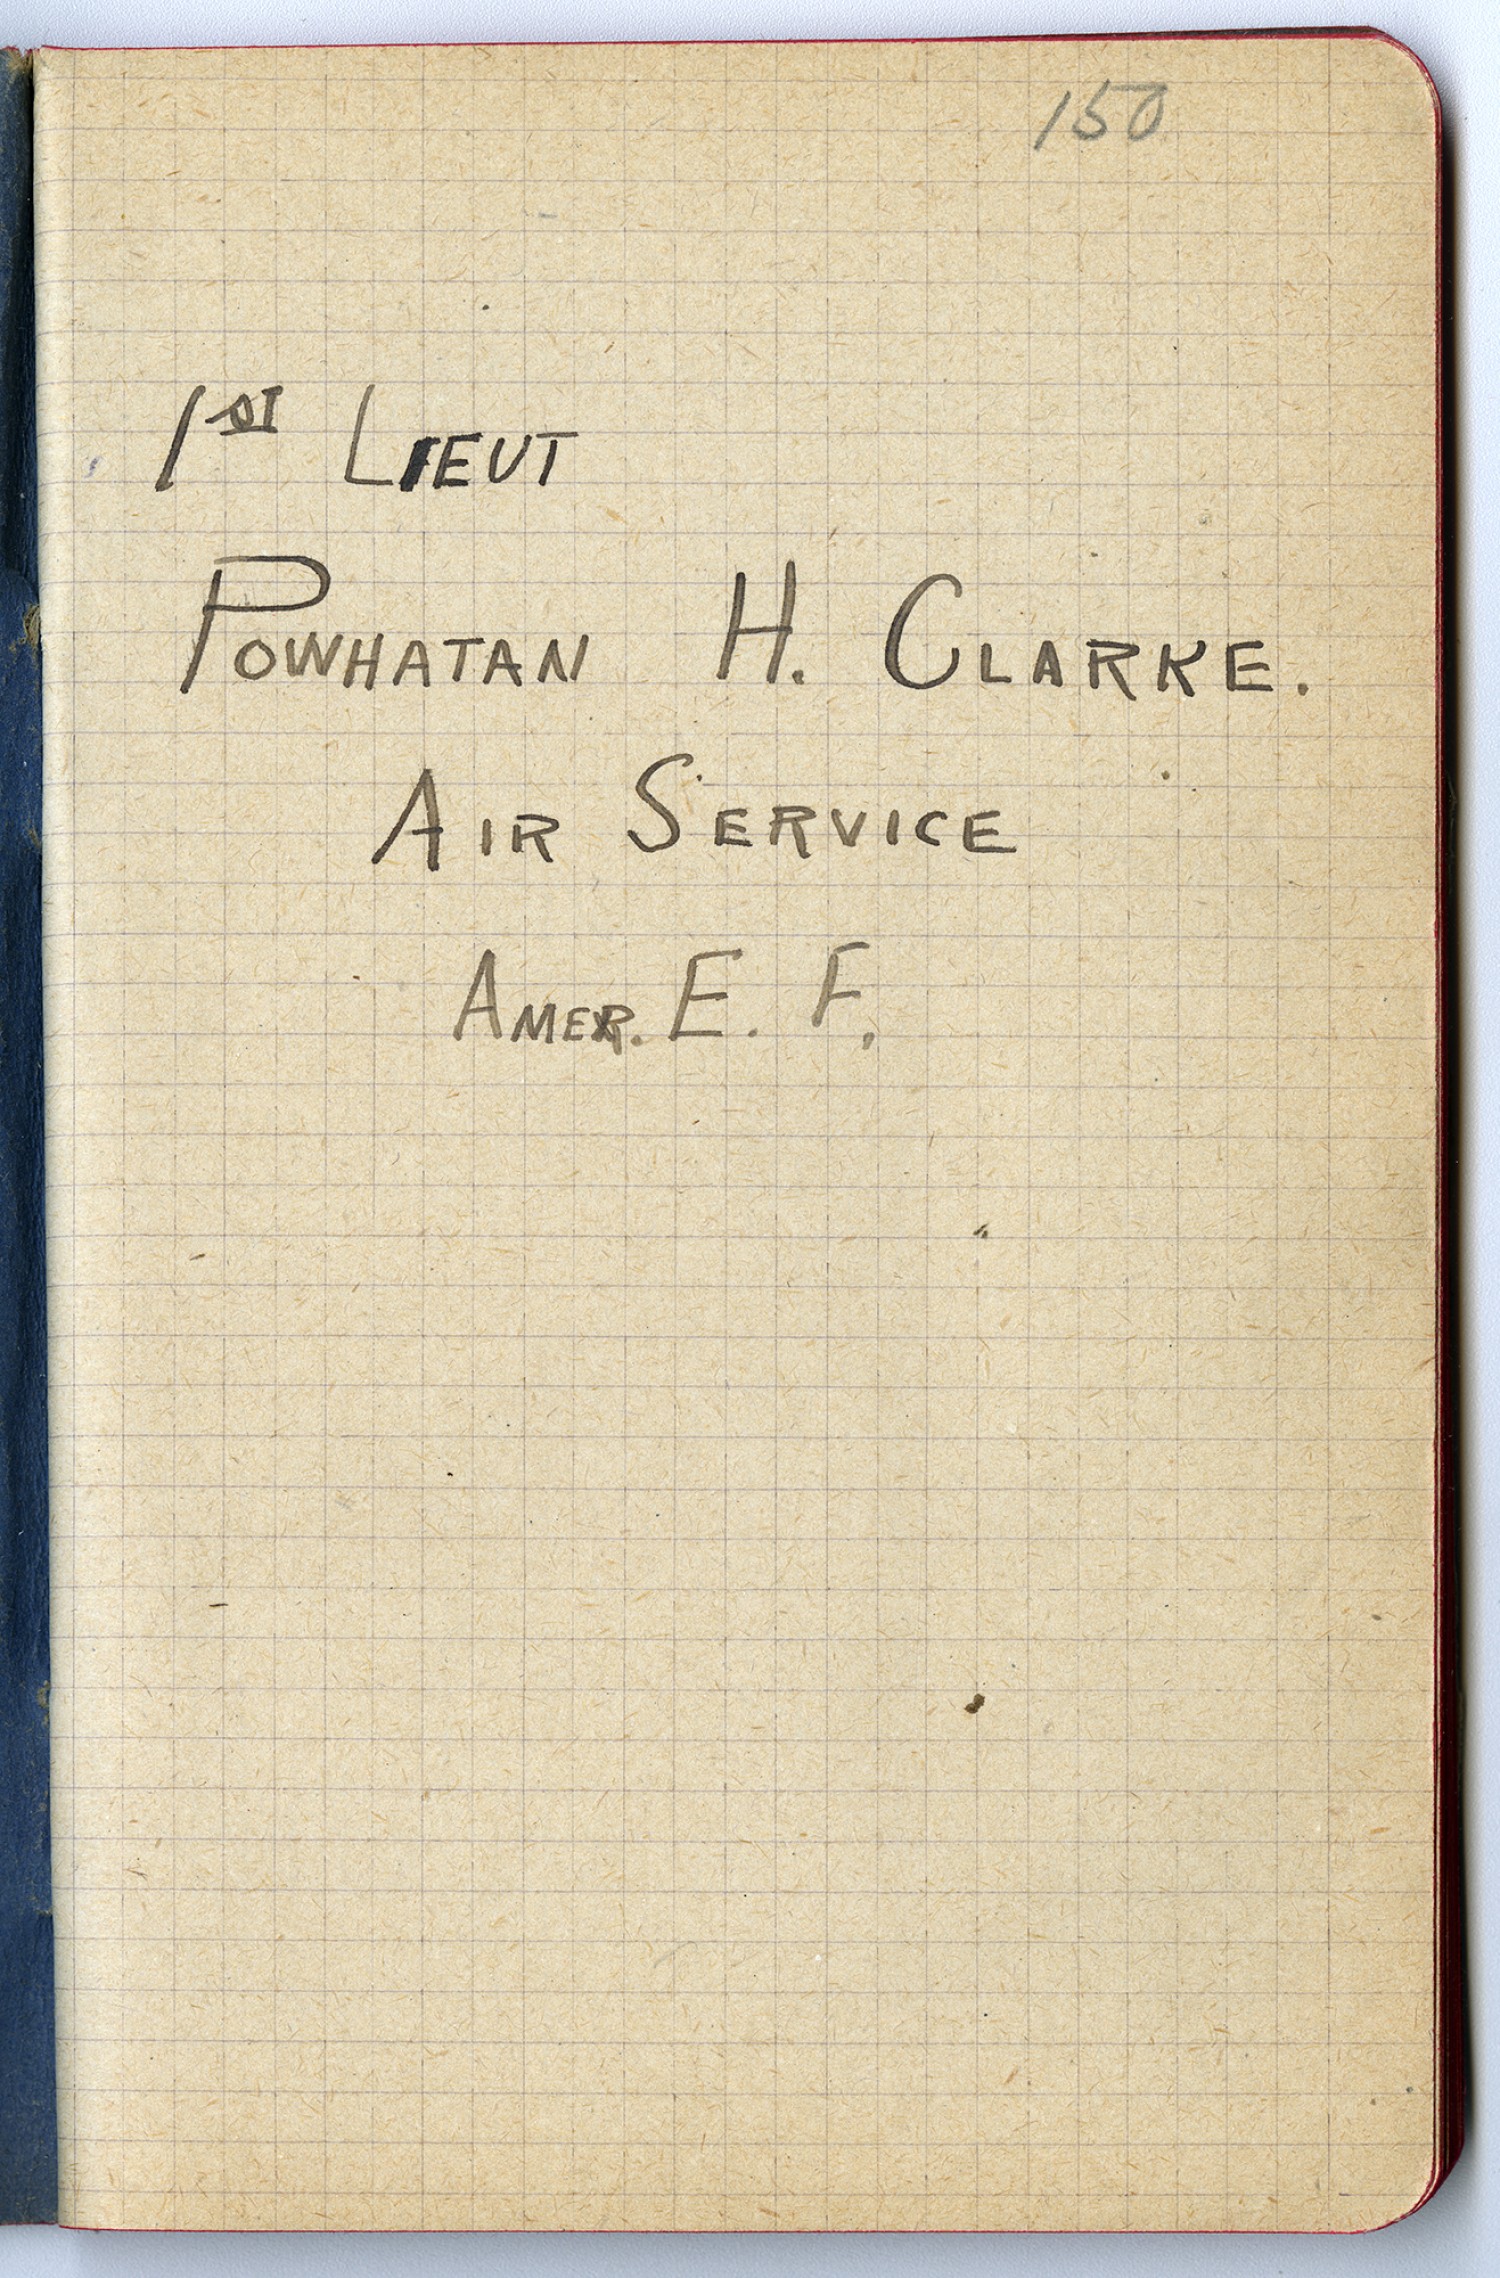 150
1st LIEUT
POWHATAN H. CLARKE.
AIR SERVICE
AMER. E. F.